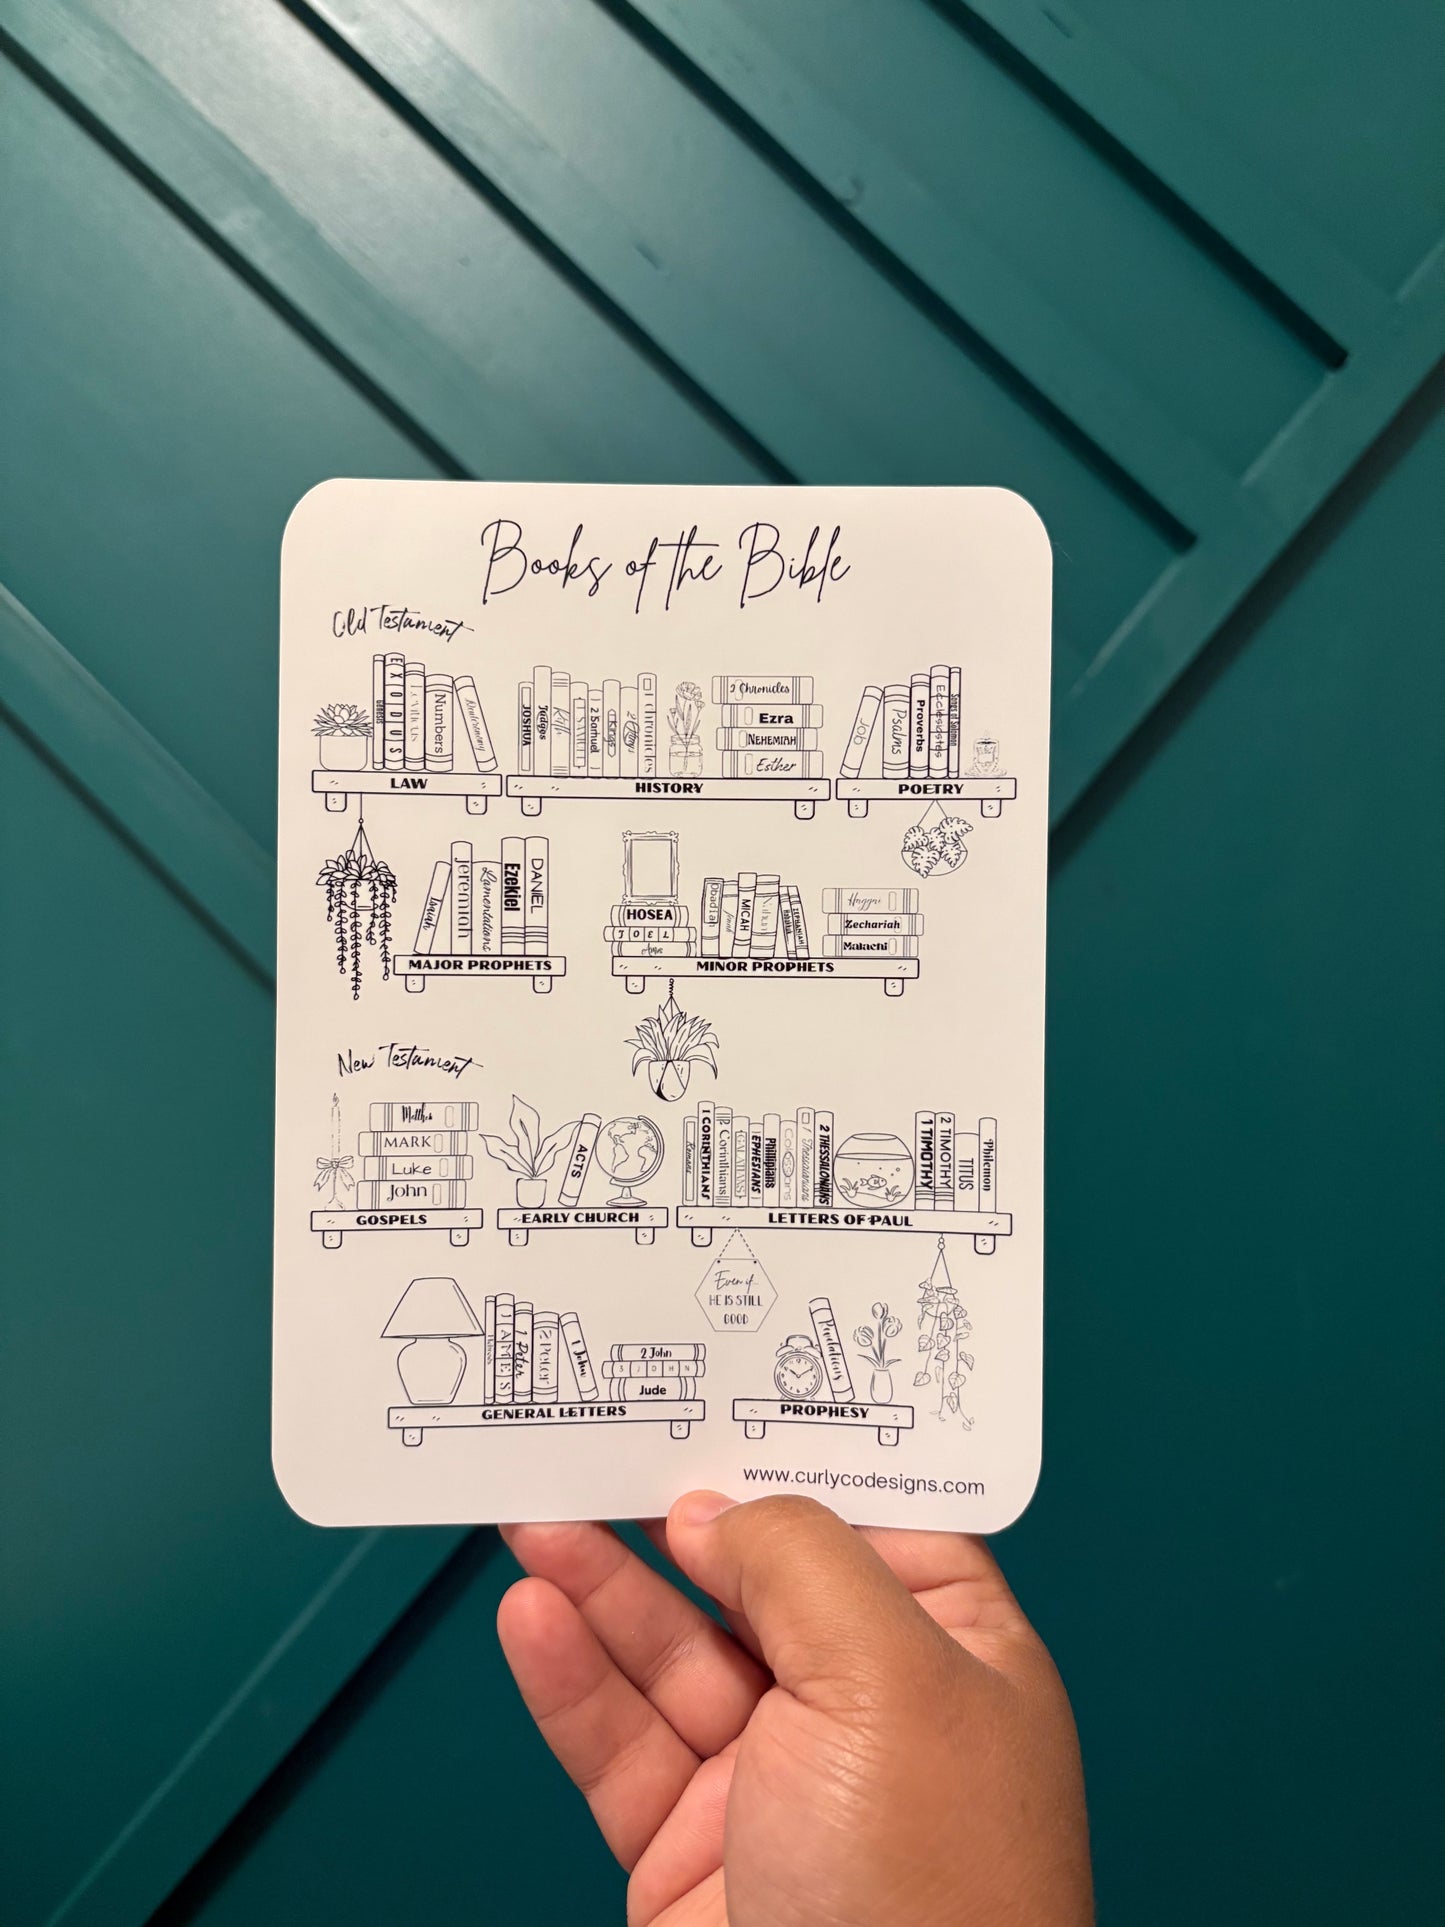 Books of the Bible
Old Testament
GENESIS
EXODUS
LEVITICUS
Numbers
Deuteronomy
LAW
JOSHUA
Judges
Ruth
1 SAMUEL
2 Samuel
1 Kings
2 Kings
1 chronicles
2 Chronicles
Ezra
NEHEMIAH
Esther
HISTORY
Job
Psalms
Proverbs
Ecclesiastes
Songs of Solomon
POETRY
Isaiah
Jeremiah
Lamentations
Ezekiel
DANIEL
MAJOR PROPHETS
HOSEA
JOEL
Amos
Obadiah
Jonah
MICAH
Nahum
Habakkuk
ZEPHANIAH
Haggai
Zechariah
Malachi
MINOR PROPHETS
New Testament
Matthew
MARK
Luke
John
GOSPELS
ACTS
EARLY CHURCH
Romans
1 CORINTHIANS
2 Corinthians
GALATIANS
EPHESIANS
Philippians
Colossians
1 Thessalonians
2 THESSALONIANS
1 TIMOTHY
2 TIMOTHY
TITUS
Philemon
LETTERS OF PAUL
Even if
HE IS STILL
GOOD
Hebrews
JAMES
1 Peter
2 Peter
1 John
2 John
3 JOHN
Jude
GENERAL LETTERS
Revelations
PROPHESY
www.curlycodesigns.com